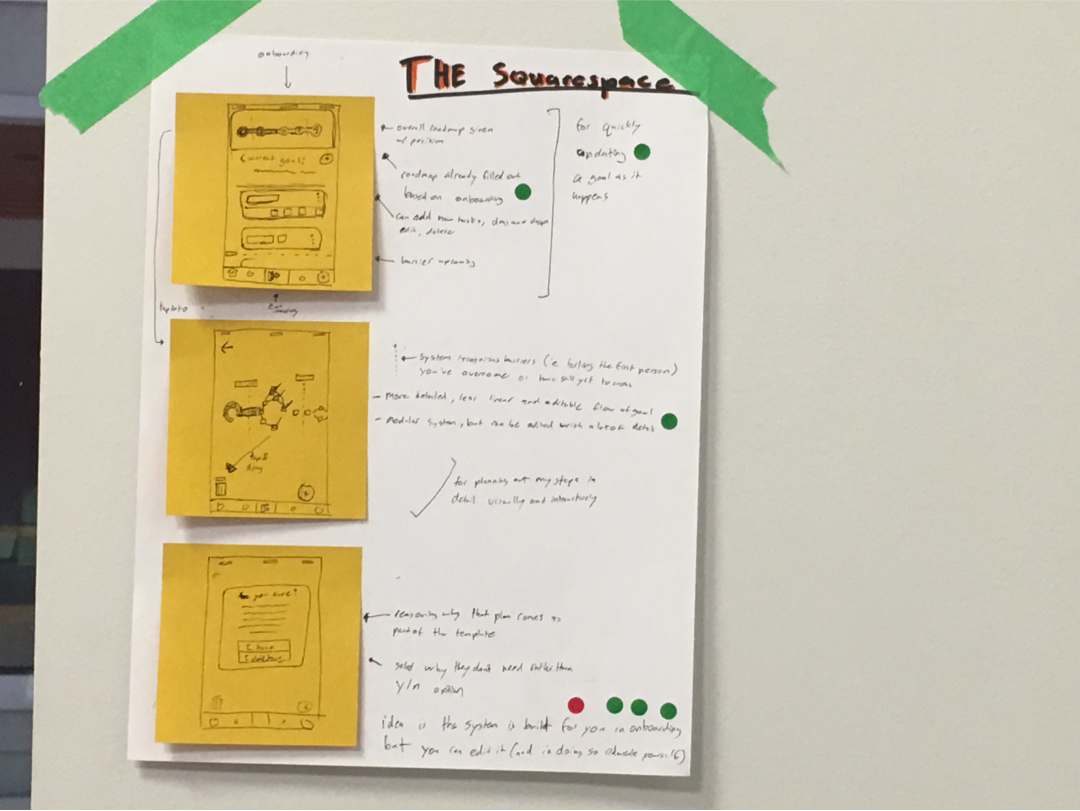 onboarding
THE Squarespace
overall roadmap given
w/ position
for quickly
updating
a goal as it
happens
roadmap already filled out
based on onboarding
can add new tasks, drag and drop
edit, delete
barrier upcoming
Current goal:
tap into
system recognises barriers (ie testing the first person)
you've overcome or have still yet to cross
more detailed, less linear and editable flow of goal
modular system, but can be edited with a lot of detail
tap &
drag
for planning out my steps in
detail visually and interactively
Are you sure?
reasoning why that plan comes as
part of the template
select why they don't need rather than
y/n option
idea is the system is built for you in onboarding
but you can edit it (and in doing so educate yourself)